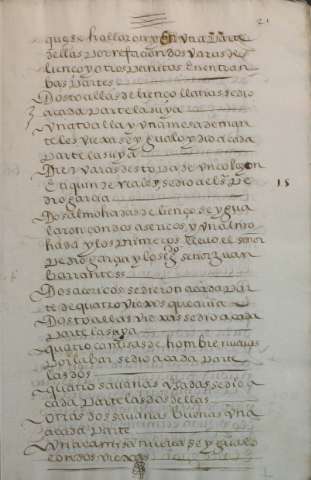 21
que se hallaron y en una parte
dellas por refacion dos varas de
lienço y otros pañitos en entram
bas partes
Dos toallas de lienço llanas se dio
a cada parte la suya
Una toalla y una mesa de man
teles viexas se ygualo y dio a cada
parte la suya
Diez varas de stopa de un colchon
15
se dio al sr. pe
dro garcia
Dos almohadas de lienço se ygua
laron con dos asericos y una almo
hada y los primeros llevo el señor
pedro garcia y los sdos. señor juan
barrantes
Dos asericos se dieron a cada par
te de quatro viexos que avia
Dos toallas viexas se dio a cada
parte la suya
quatro camisas de hombre nuevas
por labar se dio a cada parte
las dos
quatro savanas usadas se dio a
cada parte las dos dellas
otras dos savanas buenas una
a cada parte
Una camisa nueva se ygualo
con dos viexas